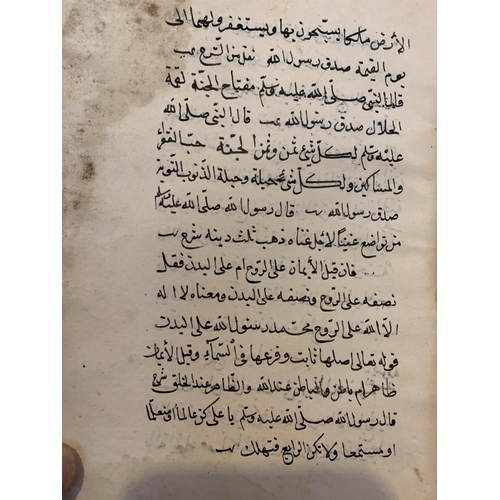 الأرض ملكا يسبحون بها ويستغفر ولهما الى
يوم القيمة صدق رسول الله نقل من الشرح
قال النبى صلى الله عليه وسلم مفتاح الجنة لقمة
الحلال صدق رسول الله قال النبى صلى الله
عليه وسلم لكل شئ ثمن وثمن الجنة حب الفقراء
والمساكين ولكل شئ حيلة وحيلة الذنوب التوبة
صدق رسول الله قال رسول الله صلى الله عليه وسلم
من تواضع غنيا لاجل غناه ذهب ثلث دينه شرح
فان قيل الأيمان على الروح ام على البدن فقل
نصفه على الروح ونصفه على البدن ومعناه لا اله
الا الله على الروح محمد رسول الله على البدن
قوله تعالى اصلها ثابت وفرعها فى السماء وقيل الأيمان
ظاهر ام باطن والباطن عند الله والظاهر عند الخلق شرح
قال رسول الله صلى الله عليه وسلم يا على كن عالما او متعلما
او مستمعا ولا تكن الرابع فتهلك